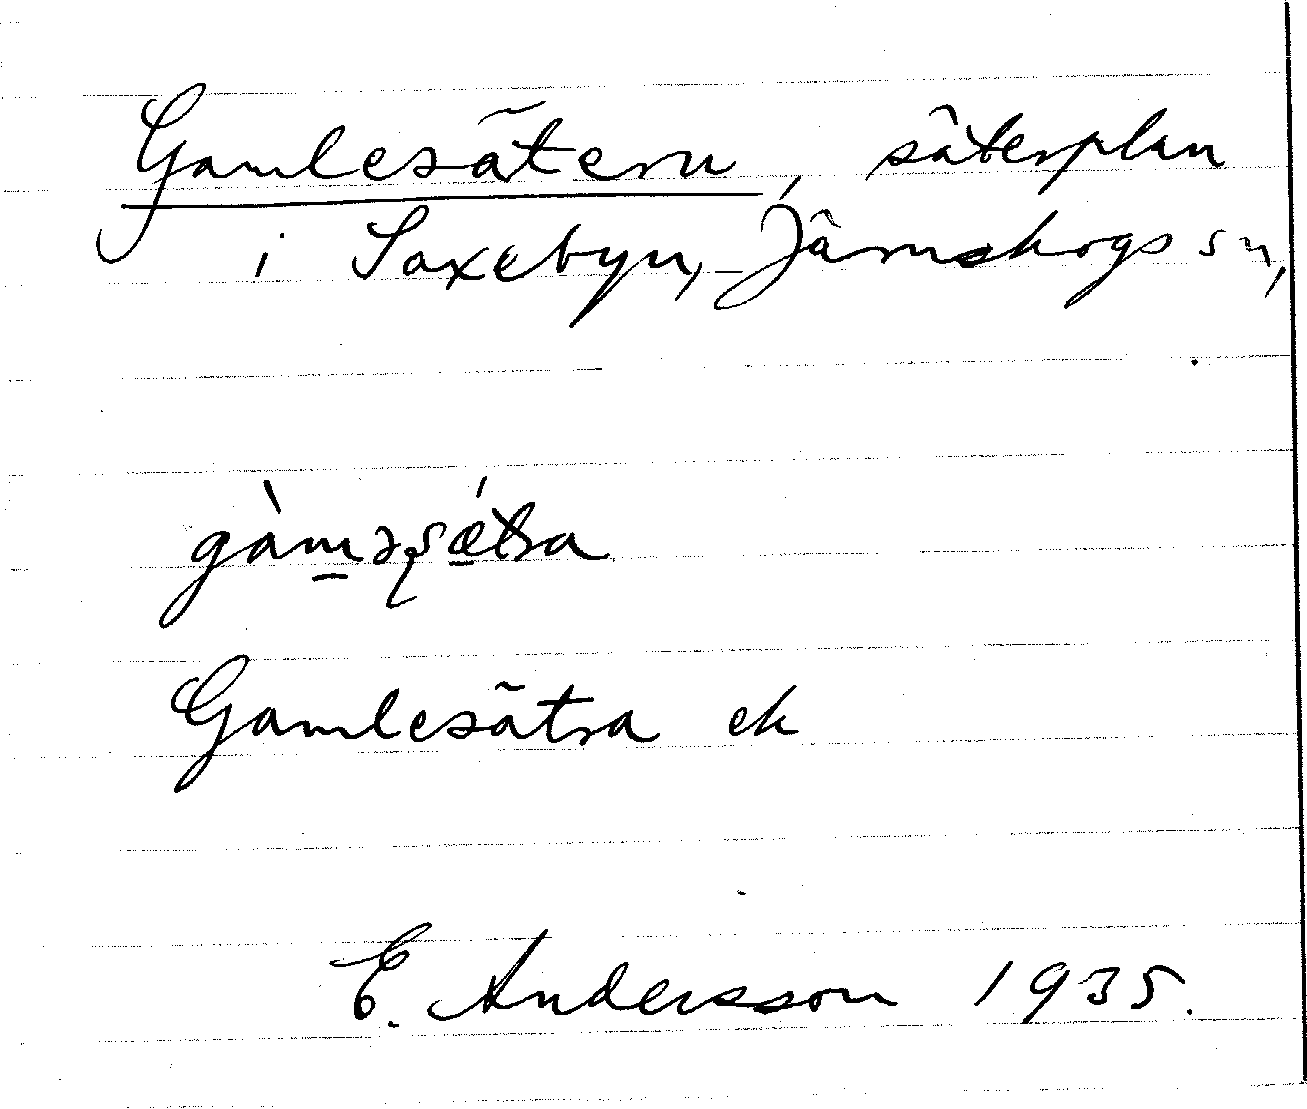 Gamlesätern, säterplan
i Saxebyn, Järnskogs sn,
gàm̠əʂǽ̠tra
Gamlesätra ek
E. Andersson 1935.